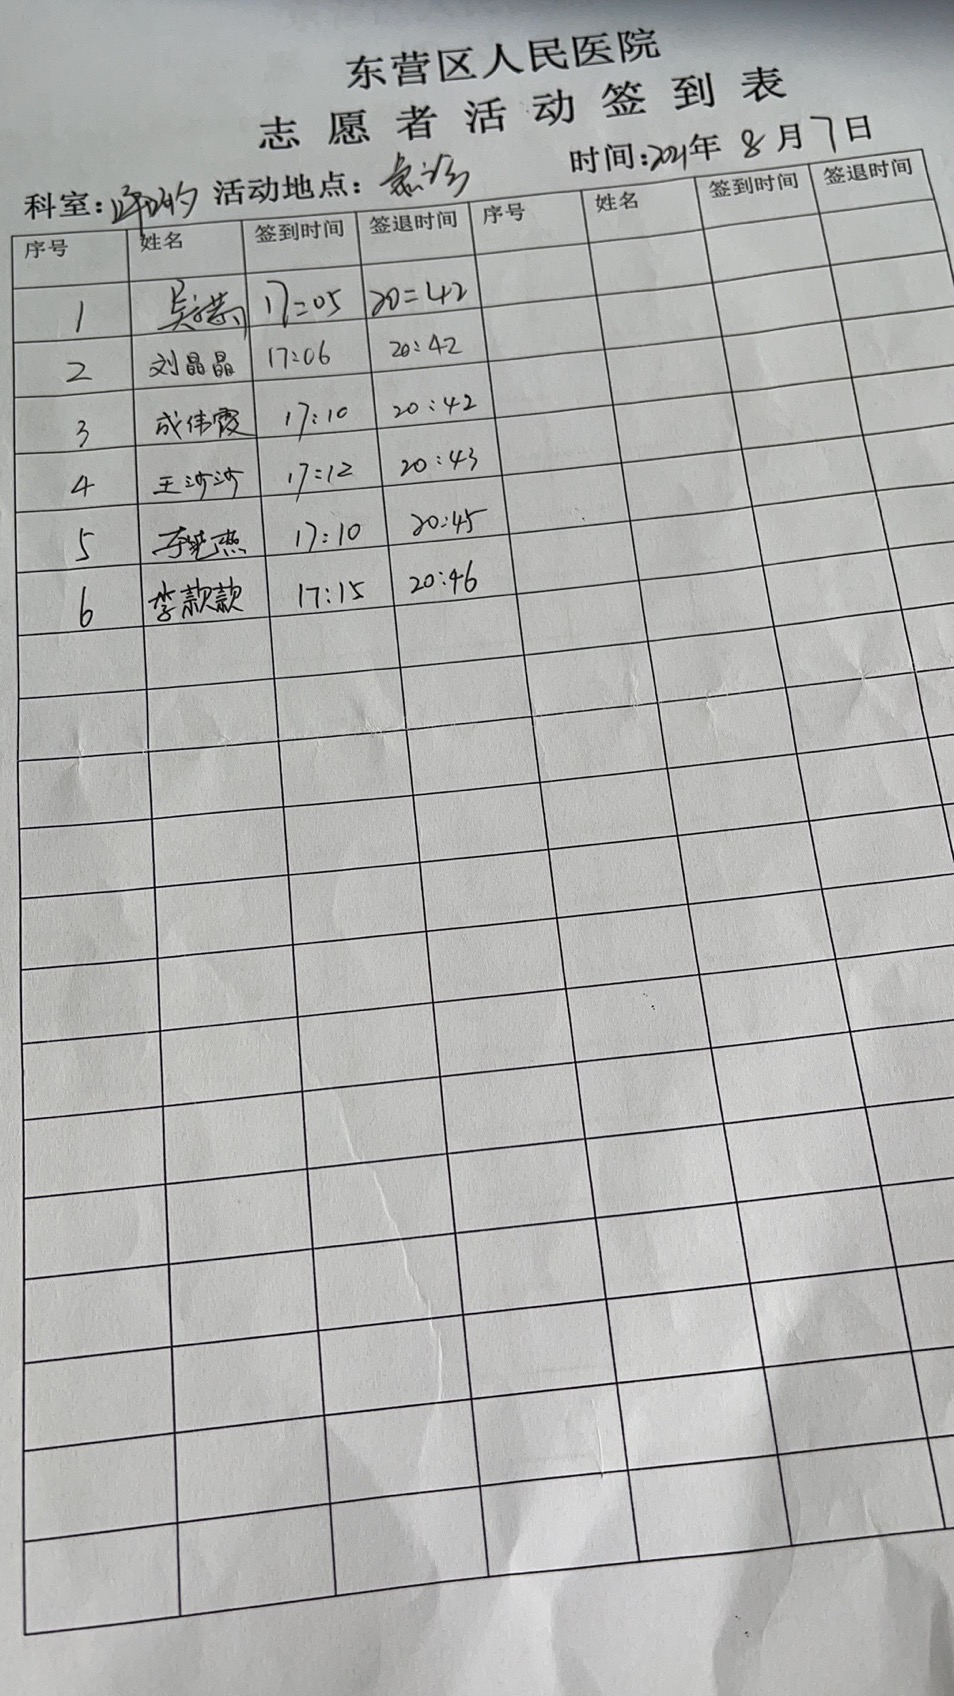 东营区人民医院
志愿者活动签到表
科室: 活动地点:急诊 时间:2021年8月7日
序号 姓名 签到时间 签退时间 序号 姓名 签到时间 签退时间
1 吴 17:05 20:42
2 刘晶晶 17:06 20:42
3 成伟霞 17:10 20:42
4 王沙沙 17:12 20:43
5 17:10 20:45
6 李款款 17:15 20:46